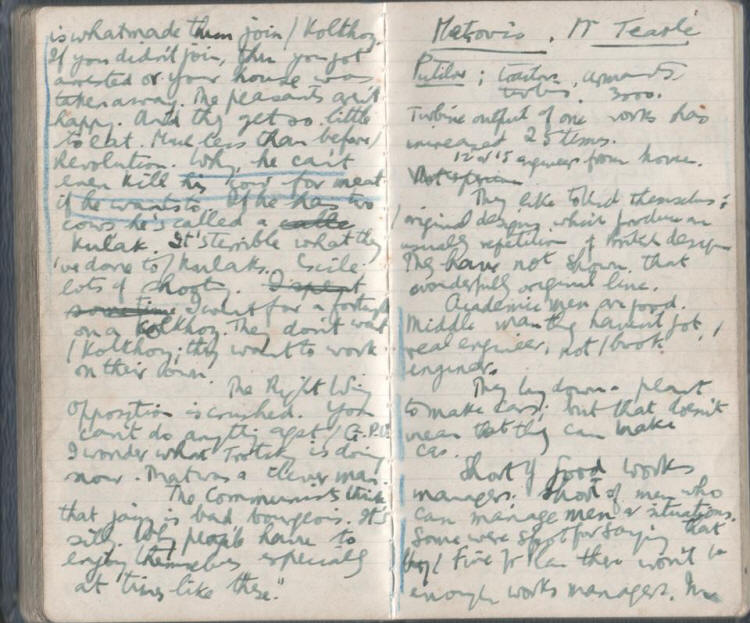 is what made them join / Kolthoz.
If you didn't join, then you got
arrested or your house was
taken away. The peasants aren't
happy. And they get so little
to eat. Much less than before /
Revolution. Why, he can't
even kill his cow for meat
if he wants to. If he has two
cows he's called a
Kulak. It's terrible what they
've done to / Kulaks. Exile
lots of shooting. I spent
some time I went for a fortnight
on a Kolkhoz. The don't want
/ Kolthoz; they want to work
on their own.
The Right Wing
Opposition is crushed. You
can't do anything agst / G.P.U.
I wonder what Trotsky is doing
now. That was a clever man.
The Communists think
that jazz is bad, bourgeois. It's
silly. Why people have to
enjoy themselves especially
at times like these."
Metrovic. Mr Teasle
Putilov; tractors, armaments,
turbines. 3000.
Turbine output of one works has
increased 25 times.
12 or 15 engineers from home.
They like to think themselves;
/ original designs, which produce are
usually repetition of British design
They have not shown that
wonderfully original line.
Academic men are good.
Middle man they havent got, /
real engineer, not / book
engineers.
They lay down a plant
to make cars; but that doesn't
mean that they can make
cars.
Short of good works
managers. Short of men who
can manage men & situations.
Some were shot for saying that
/ Five Yr Plan there won't be
enough works managers. In